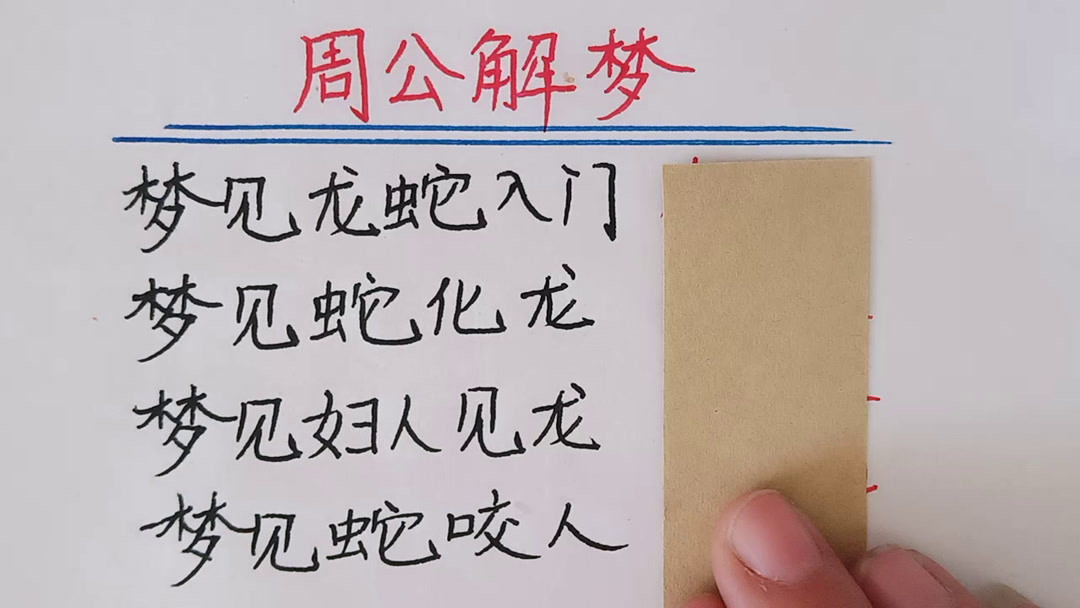 周公解梦
梦见龙蛇入门
梦见蛇化龙
梦见妇人见龙
梦见蛇咬人